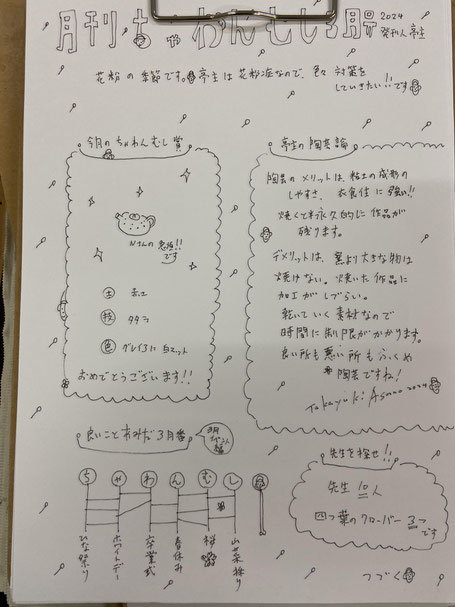 月刊 ちゃわんむし 3月号
2024
発刊人 亭主
花粉の季節です。亭主は花粉症なので、色々 対策を
していきたい!!です
今月のちゃわんむし賞
Nさんの 急須!!
です
土 赤土
技 タタラ
色 グレイ3に白マット
おめでとうございます!!
亭主の陶芸論
陶芸のメリットは、粘土の成形の
しやすさ、衣食住に強い!!
焼くと永久的に作品が
残ります。
デメリットは、窯より大きな物は
焼けない。焼いた作品に
加工がしづらい。
乾いていく素材なので
時間に制限がかかります。
良い所も悪い所もふくめ
陶芸ですね!
2024
良いことあみだ3月号
3月
イベント
編
ち ゃ わ ん む し
ひな祭り
ホワイトデー
卒業式
春休み
桜
山菜採り
先生を探せ!!
先生 10人
四つ葉のクローバー 3つ
です
つづく